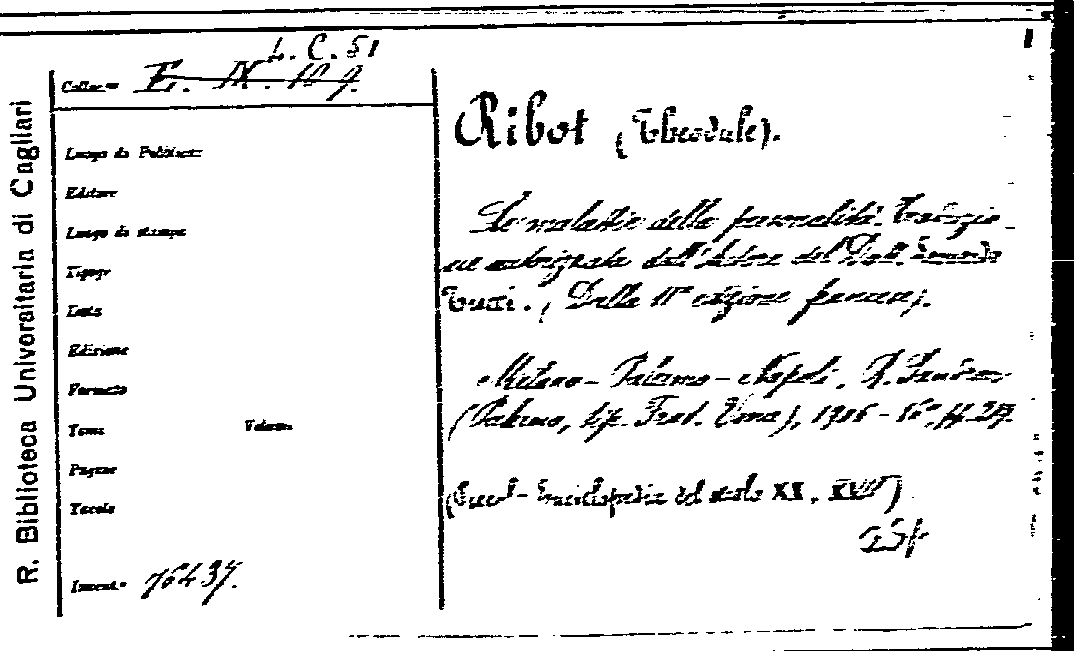 R. Biblioteca Univorsitaria di Cagliari
L. C. 51
Colloc.ne E. IX. 109.
Luogo da Pubblicaz.
Editore
Luogo da stampa
Tipogr.
Data
Edizione
Formato
Tomo Volume
Pagine
Tavole
Invent.° 76437.
Ribot (Theodule).
Le malattie della personalità. Traduzio-
ne autorizzata dall'Autore del Dott.
(Dalla 11ª edizione francese).
Milano - Palermo - Napoli, R. Sandron
(Palermo, tip. Frat. Vena), 1906 - 16°,
(Piccol- Enciclopedia del secolo XX, XVIII)